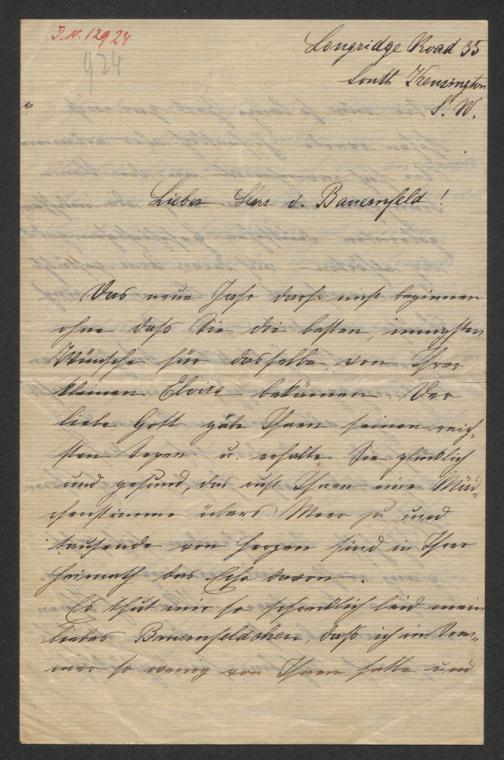 J.N. 12924
924
Longridge Road 33
South Kensington
S. W.
Lieber Herr v. Bauernfeld!
Das neue Jahr darf nicht beginnen
ohne daß Sie die besten, innigsten
Wünsche für dasselbe von Ihrer
kleinen Eloisa bekämen. Der
liebe Gott gebe Ihnen seinen reich-
sten Segen u. erhalte Sie glücklich
und gesund, das ruft Ihnen eine Mäd-
chenstimme übers Meer zu und
tausende von Herzen sind in Ihrer
Heimath das Echo davon.
Es thut mir so schrecklich leid mein
liebes Bauernfeldchen, daß ich im Som-
mer so wenig von Ihnen hatte und